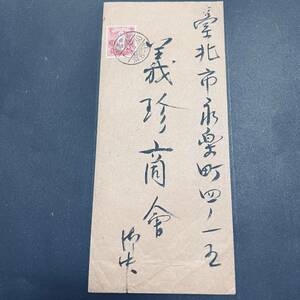 臺北市永樂町四ノ一五
義珍商會
御中